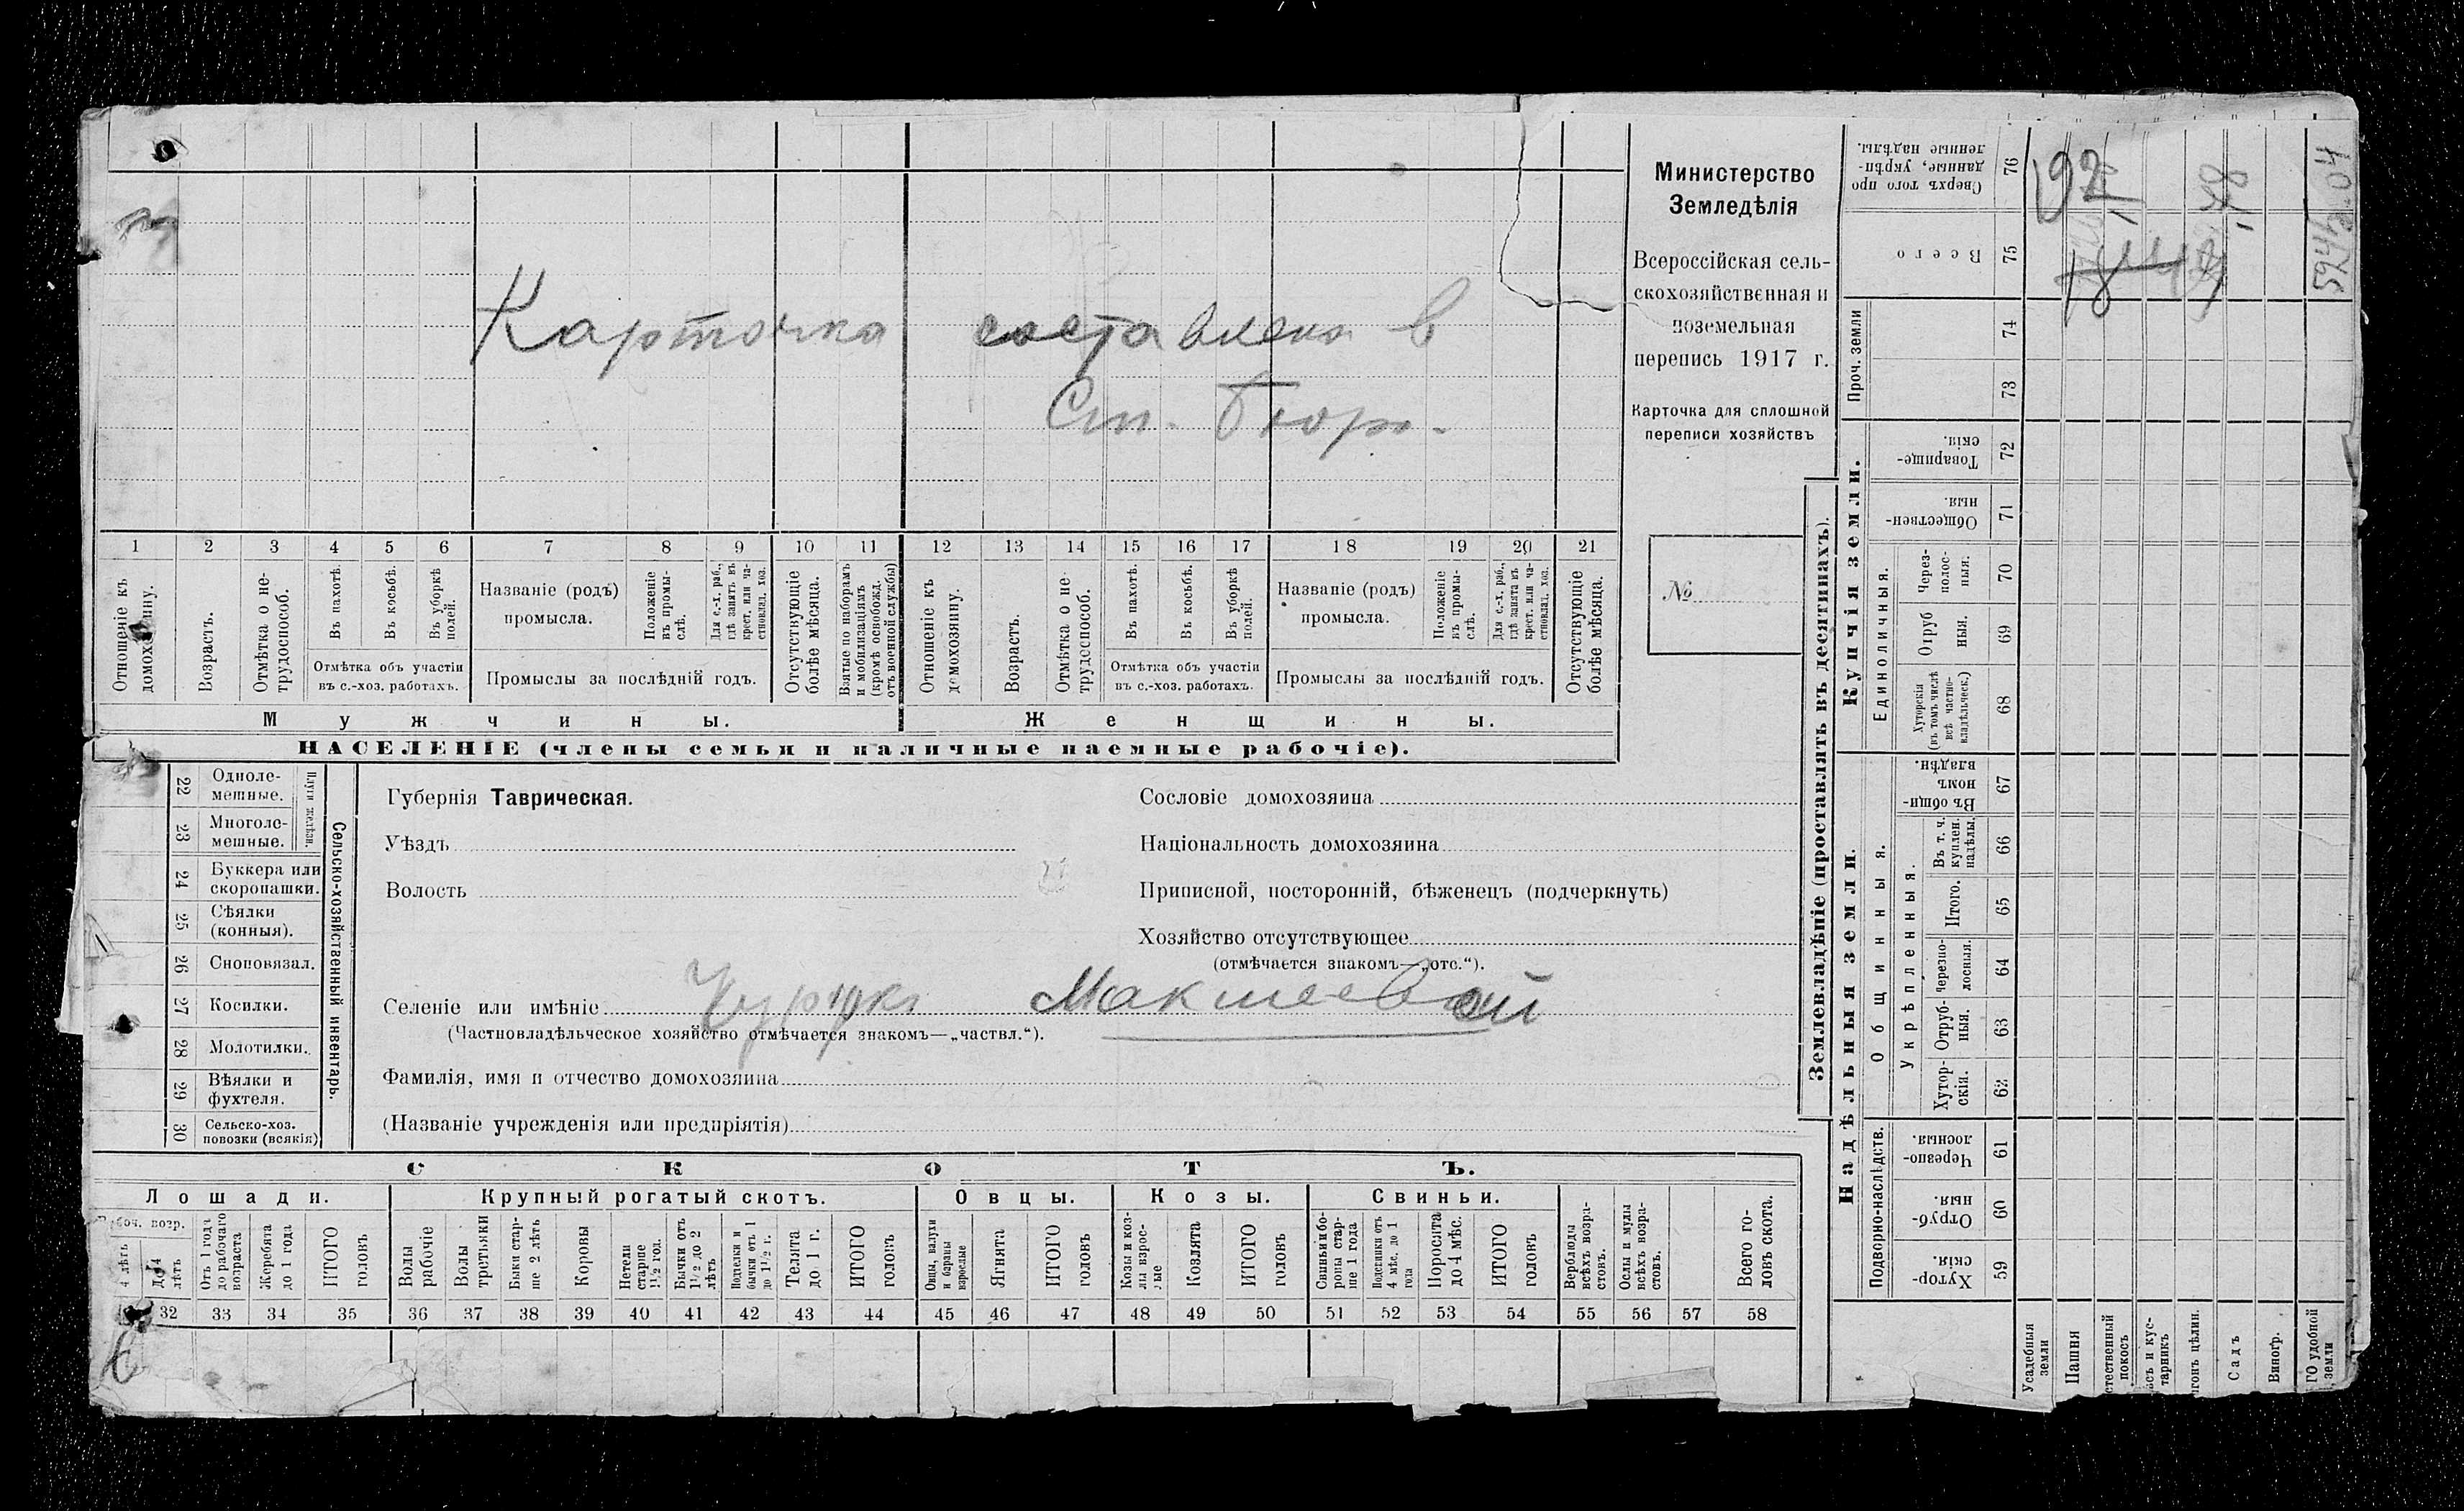 Карточка составлена в
Ст. Бюро.
Министерство
Земледѣлія
Всероссійская сель-
скохозяйственная и
поземельная
перепись 1917 г.
Карточка для сплошной
переписи хозяйствъ
№
1 2 3 4 5 6 7 8 9 10 11 12 13 14 15 16 17 18 19 20 21
Отношеніе къ
домохозяину.
Возрастъ.
Отмѣтка о не-
трудоспособ.
Въ пахотѣ.
Въ косьбѣ.
Въ уборкѣ
полей.
Отмѣтка объ участіи
въ с.-хоз. работахъ.
Названіе (родъ)
промысла.
Положеніе
въ промы-
слѣ.
Для с.-х. раб.,
гдѣ занятъ въ
крест. или ча-
стновлад. хоз.
Промыслы за послѣдній годъ.
Отсутствующіе
болѣе мѣсяца.
Взятые по наборамъ
и мобилизаціямъ
(кромѣ освобожд.
отъ военной службы)
Отношеніе къ
домохозяину.
Возрастъ.
Отмѣтка о не-
трудоспособ.
Въ пахотѣ.
Въ косьбѣ.
Въ уборкѣ
полей.
Отмѣтка объ участіи
въ с.-хоз. работахъ.
Названіе (родъ)
промысла.
Положеніе
въ промы-
слѣ.
Для с.-х. раб.,
гдѣ занята въ
крест. или ча-
стновлад. хоз.
Промыслы за послѣдній годъ.
Отсутствующіе
болѣе мѣсяца.
Мужчины.
Женщины.
НАСЕЛЕНІЕ (члены семьи и наличные наемные рабочіе).
22 Одноле-
мешные.
23 Многоле-
мешные.
Плуги желѣзн.
24 Буккера или
скоропашки.
25 Сѣялки
(конныя).
26 Сноповязал.
27 Косилки.
28 Молотилки.
29 Вѣялки и
фухтеля.
30 Сельско-хоз.
повозки (всякія)
Сельско-хозяйственный инвентарь.
Губернія Таврическая.
Уѣздъ
Волость
Сословіе домохозяина
Національность домохозяина
Приписной, посторонній, бѣженецъ (подчеркнуть)
Хозяйство отсутствующее
(отмѣчается знакомъ—„отс.“).
Селеніе или имѣніе
(Частновладѣльческое хозяйство отмѣчается знакомъ—„частвл.“).
Фамилія, имя и отчество домохозяина
(Названіе учрежденія или предпріятія)
СКОТЪ.
Лошади.
Крупный рогатый скотъ.
Овцы.
Козы.
Свиньи.
4 лѣтъ
До 4
лѣтъ
Отъ 1 года
до рабочаго
возраста
Жеребята
до 1 года
ИТОГО
головъ
Волы
рабочіе
Волы
третьяки
Быки стар-
ше 2 лѣтъ
Коровы
Нетели
старше
1½ год.
Бычки отъ
1½ до 2
лѣтъ
Подтелки и
бычки отъ 1
до 1½ г.
Телята
до 1 г.
ИТОГО
головъ
Овцы, валухи
и бараны
взрослые
Ягнята
ИТОГО
головъ
Козы и коз-
лы взрос-
лые
Козлята
ИТОГО
головъ
Свиньи и бо-
ровы стар-
ше 1 года
Подсвинки отъ
4 мѣс. до 1
года
Поросята
до 4 мѣс.
ИТОГО
головъ
Верблюды
всѣхъ возра-
стовъ.
Ослы и мулы
всѣхъ возра-
стовъ.
Всего го-
ловъ скота.
32 33 34 35 36 37 38 39 40 41 42 43 44 45 46 47 48 49 50 51 52 53 54 55 56 57 58
Землевладѣніе (проставлять въ десятинахъ).
Надѣльныя земли.
Подворно-наслѣдств.
Хутор-
скія.
59
Отруб-
ныя.
60
Черезпо-
лосныя.
61
Общинныя.
Укрѣпленныя.
Хутор-
скія.
62
Отруб-
ныя.
63
Черезпо-
лосныя.
64
Итого.
65
Въ т. ч.
куплен.
надѣлы.
66
Въ общи-
номъ
владѣн.
67
Купчія земли.
Единоличныя.
Хуторскія
(въ томъ числѣ
всѣ частно-
владѣльческ.)
68
Отруб
ныя.
69
Через-
полос-
ныя.
70
Обществен-
ныя.
71
Товарище-
скія.
72
Проч. земли
73
74
Всего
75
Сверхъ того про
данные, укрѣп-
ленные надѣлы.
76
Усадебныя
земли
Пашня
стественный
покосъ
ѣсъ и кус-
тарникъ
гонъ цѣлин.
Садъ
Виногр.
ГО удобной
земли